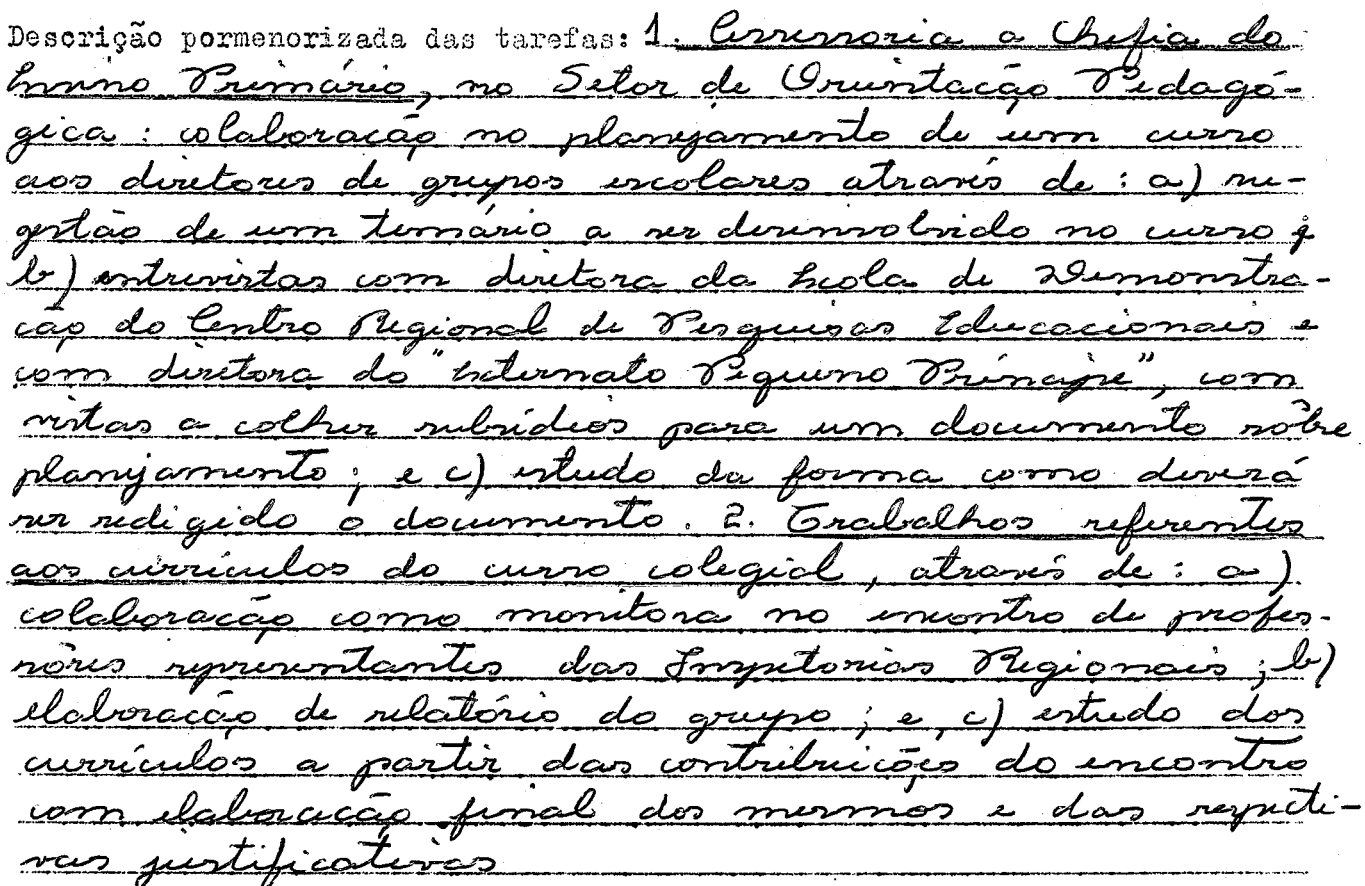 Descrição pormenorizada das tarefas: 1. Assessoria a Chefia do
Ensino Primário, no Setor de Orientação Pedagó-
gica : colaboração no planejamento de um curso
aos diretores de grupos escolares através de : a) su-
gestão de um temário a ser desenvolvido no curso ;
b) entrevistas com diretora da Escola de Demonstra-
ção do Centro Regional de Pesquisas Educacionais e
com diretora do "Externato Pequeno Príncipe", com
vistas a colher subsídios para um documento sôbre
planejamento ; e c) estudo da forma como deverá
ser redigido o documento. 2. Trabalhos referentes
aos currículos do curso colegial, através de : a)
colaboração como monitora no encontro de profes-
sôres representantes das Inspetorias Regionais ; b)
elaboração de relatório do grupo ; e, c) estudo dos
currículos a partir das contribuições do encontro
com elaboração final dos mesmos e das respecti-
vas justificativas